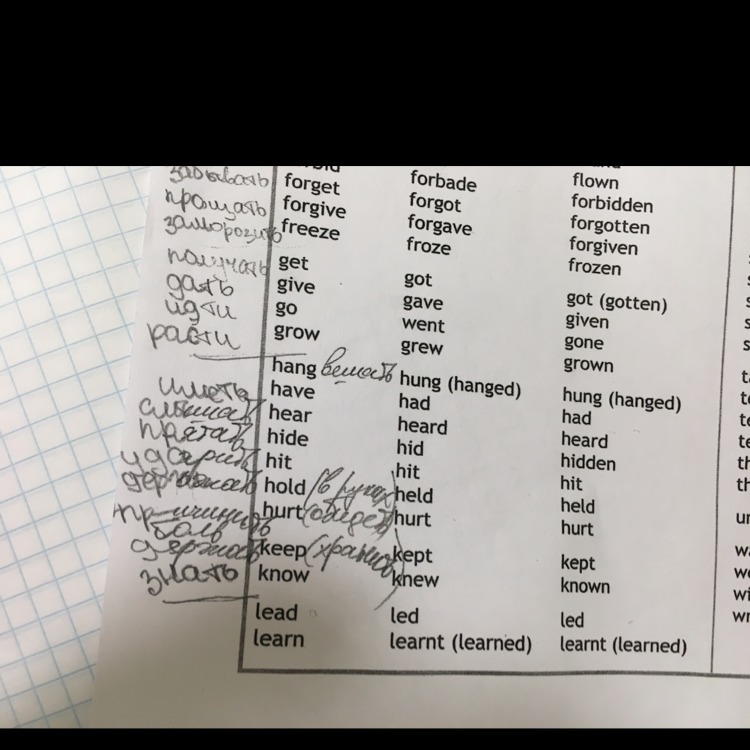 flown
forbade forbidden
забывать forget forgot forgotten
прощать forgive forgave forgiven
заморозить freeze froze frozen
получать get got got (gotten)
дать give gave given
идти go went gone
расти grow grew grown
hang вешать hung (hanged) hung (hanged)
иметь have had had
слышать hear heard heard
прятать hide hid hidden
ударить hit hit hit
держать hold (в руках) held held
причинить hurt (обидеть) hurt hurt
боль
держать keep (хранить) kept kept
знать know knew known
lead led led
learn learnt (learned) learnt (learned)